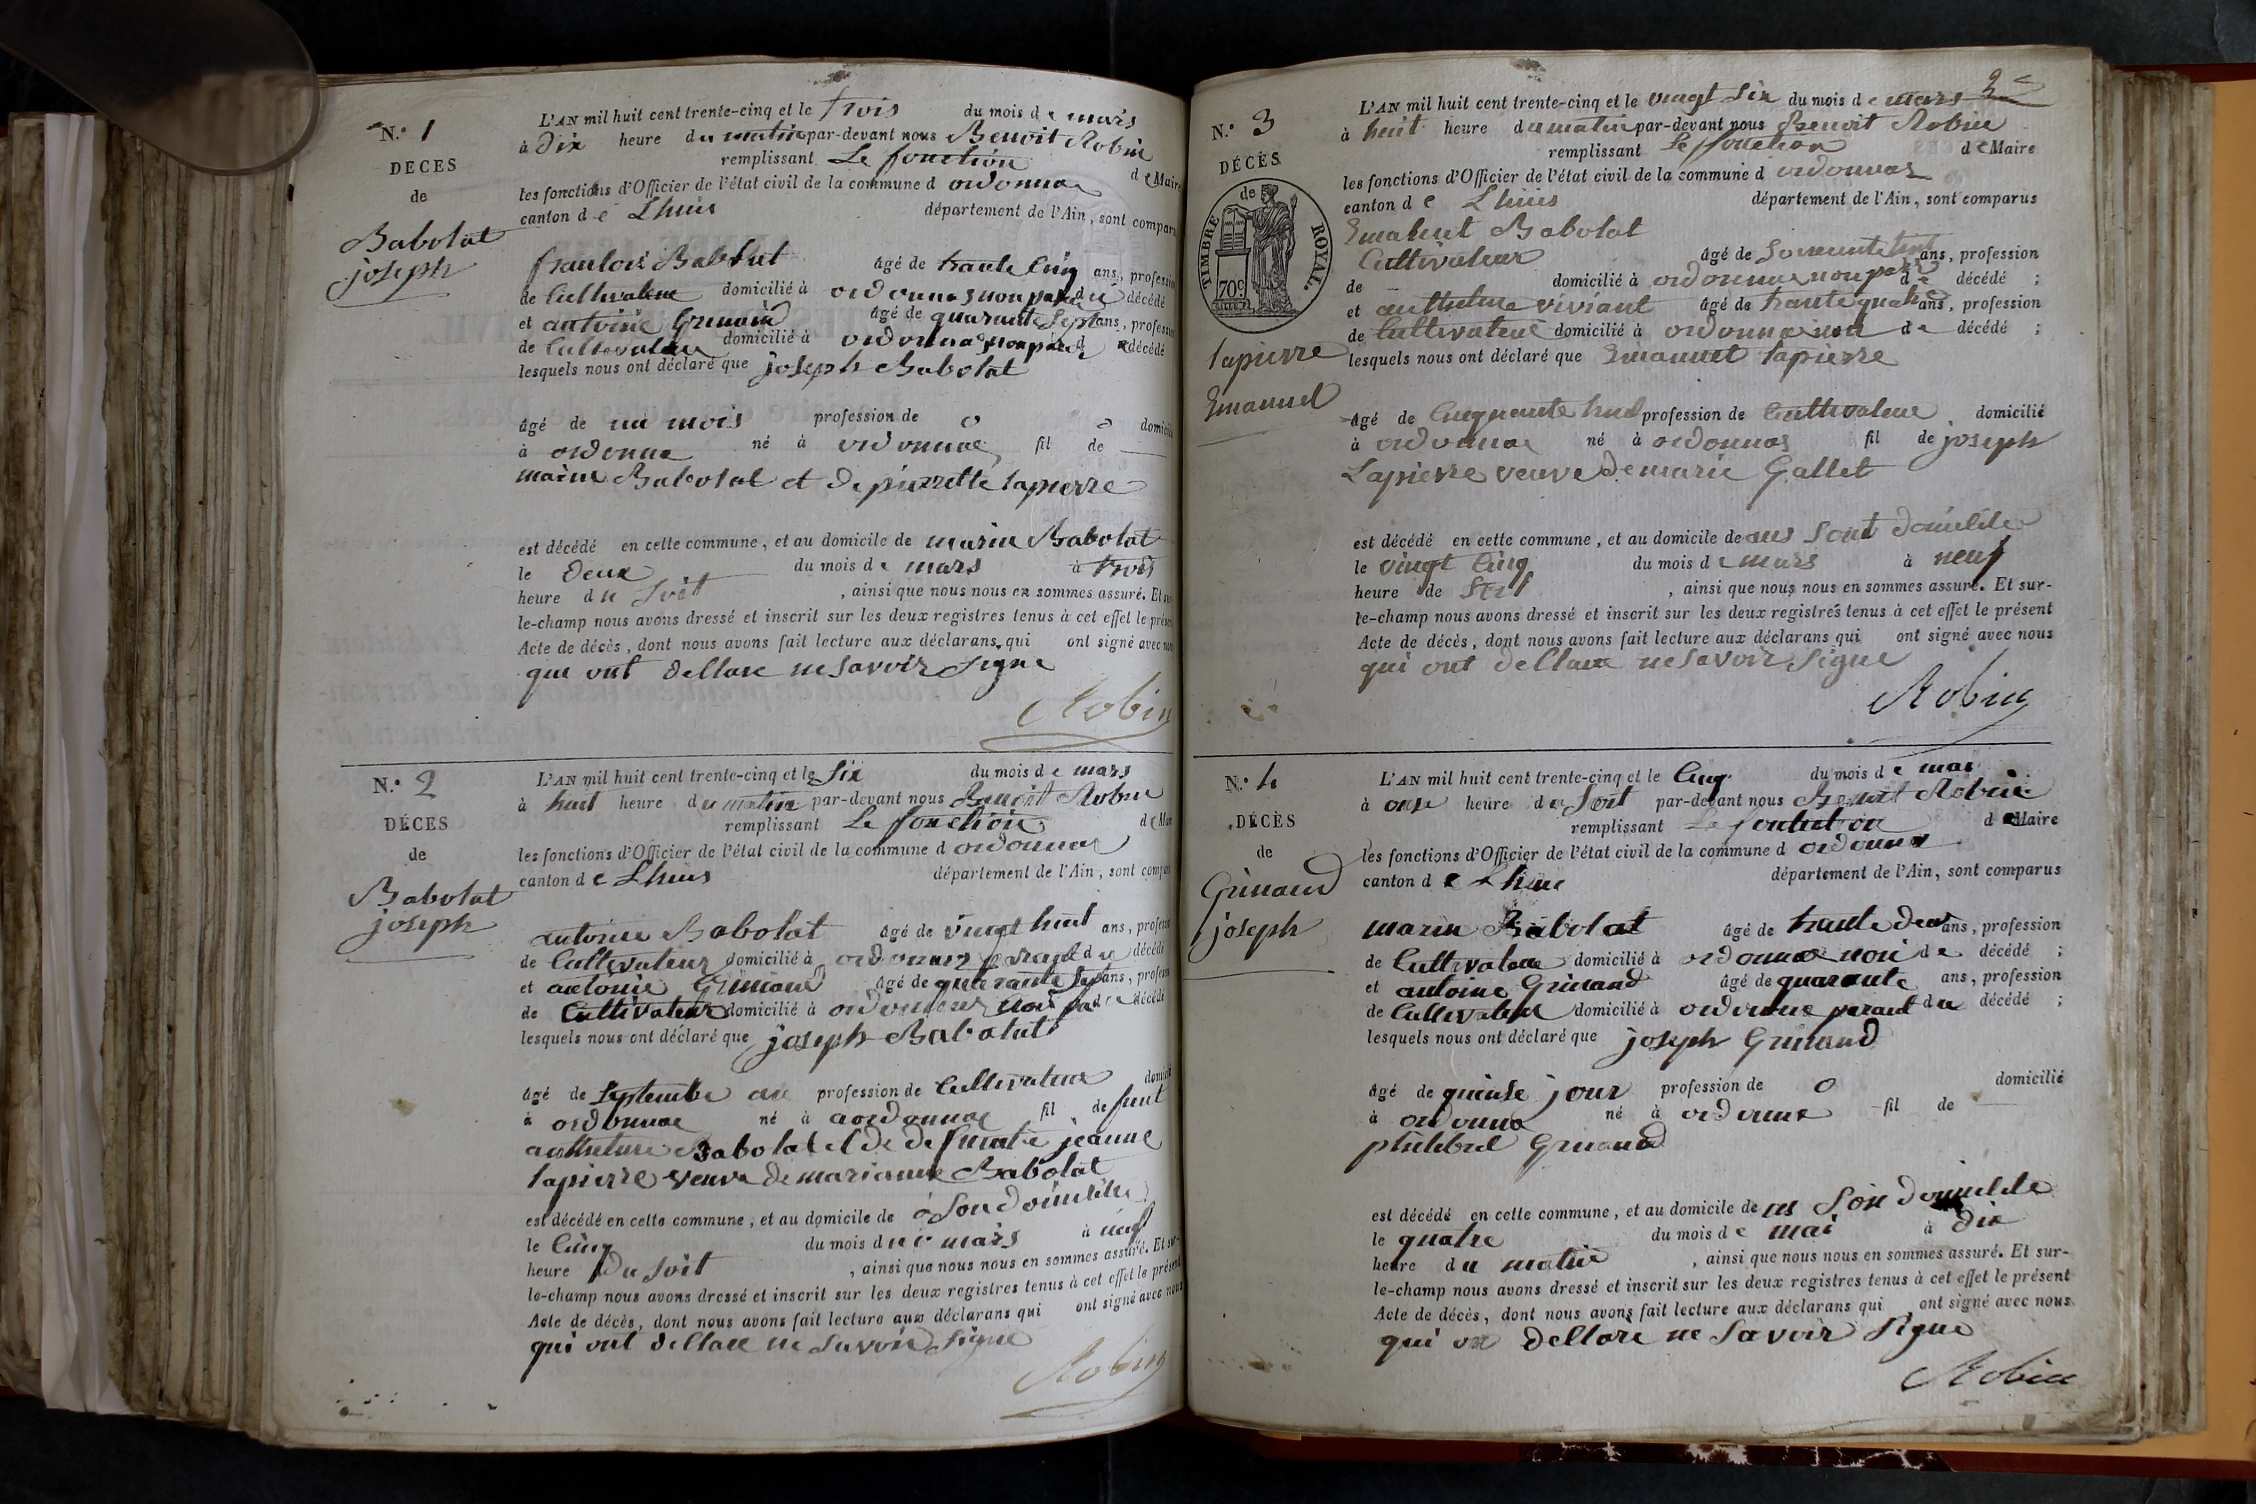 N.º 1
DÉCES
de
Babolat
joseph
L'AN mil huit cent trente-cinq et le trois du mois de mars
à dix heure du matin par-devant nous Benoit Robin
remplissant Le fonction de Maire
les fonctions d'Officier de l'état civil de la commune d ordonnas
canton de Lhuis département de l'Ain, sont comparus
francois Babolat âgé de trante Cinq ans, profession
de Cultivateur domicilié à ordonnas non paran du décédé
et antoine Grinand âgé de quarante Sept ans, profession
de Cultivateur domicilié à ordonnas non paran d décédé
lesquels nous ont déclaré que joseph Babolat
âgé de un mois profession de o domicilié
à ordonna né à ordonnas fil de
marin Babolat et de pierrette lapierre
est décédé en cette commune, et au domicile de marin Babolat
le deux du mois de mars à trois
heure du soit , ainsi que nous nous en sommes assuré. Et sur-
le-champ nous avons dressé et inscrit sur les deux registres tenus à cet effet le présent
Acte de décès, dont nous avons fait lecture aux déclarans qui ont signé avec nous
qui ont dellare ne savoir signe
Robin
N.º 2
DÉCES
de
Babolat
joseph
L'AN mil huit cent trente-cinq et le Six du mois de mars
à huit heure du matin par-devant nous Benoit Robin
remplissant Le fonction de Maire
les fonctions d'Officier de l'état civil de la commune d ordonnas
canton de Lhuis département de l'Ain, sont comparus
antoine Babolat âgé de vingt huit ans, profession
de Cultivateur domicilié à ordonnas parant du décédé
et antoine Grinand âgé de quarante Sept ans, profession
de Cultivateur domicilié à ordonnas non de décédé
lesquels nous ont déclaré que joseph Babolat
âgé de Septente an profession de Cultivateur domicilié
à ordonnas né à aordonnas fil de funt
anthelme Babolat et de defunte jeanne
lapierre veuve de marianne Babolat
est décédé en cette commune, et au domicile de o Son domicile
le Cinq du mois du mars à neuf
heure du soit , ainsi que nous nous en sommes assuré. Et sur-
le-champ nous avons dressé et inscrit sur les deux registres tenus à cet effet le présent
Acte de décès, dont nous avons fait lecture aux déclarans qui ont signé avec nous
qui ont dellare ne savoir signe
Robin
2e
N.º 3
DÉCÈS
de
TIMBRE ROYAL
70c
lapierre
Emanuel
L'AN mil huit cent trente-cinq et le vingt six du mois de mars
à huit heure du matin par-devant nous Benoit Robin
remplissant Le fonction de Maire
les fonctions d'Officier de l'état civil de la commune d ordonnas
canton de Lhuis département de l'Ain, sont comparus
Emanuel Babolat
Cultivateur âgé de Soissente ans, profession
de domicilié à ordonnas non paran de décédé ;
et anthelme viviant âgé de trante quatre ans, profession
de Cultivateur domicilié à ordonnas non de décédé ;
lesquels nous ont déclaré que Emanuel lapierre
âgé de Cinquante huit profession de Cultivateur domicilié
à ordonnas né à ordonnas fil de joseph
Lapierre veuve de marie Gallet
est décédé en cette commune, et au domicile de ans Sont domicile
le vingt Cinq du mois de mars à neuf
heure de Soit , ainsi que nous nous en sommes assuré. Et sur-
le-champ nous avons dressé et inscrit sur les deux registres tenus à cet effet le présent
Acte de décès, dont nous avons fait lecture aux déclarans qui ont signé avec nous
qui ont dellare ne savoir signe
Robin
N.º 4
DÉCÈS
de
Grinand
joseph
L'AN mil huit cent trente-cinq et le Cinq du mois de mai
à onze heure du Soit par-devant nous Benoit Robin
remplissant Le fonction de Maire
les fonctions d'Officier de l'état civil de la commune d ordonnas
canton de Lhuis département de l'Ain, sont comparus
marin Babolat âgé de trante deux ans, profession
de Cultivateur domicilié à ordonnas non de décédé ;
et antoine Grinand âgé de quarante ans, profession
de Cultivateur domicilié à ordonnas parant du décédé ;
lesquels nous ont déclaré que joseph Grinand
âgé de quinse jour profession de o domicilié
à ordonnas né à ordonnas fil de
philibert Grinand
est décédé en cette commune, et au domicile de Son domicile
le quatre du mois de mai à dix
heure du matin , ainsi que nous nous en sommes assuré. Et sur-
le-champ nous avons dressé et inscrit sur les deux registres tenus à cet effet le présent
Acte de décès, dont nous avons fait lecture aux déclarans qui ont signé avec nous
qui on dellare ne savoir signe
Robin